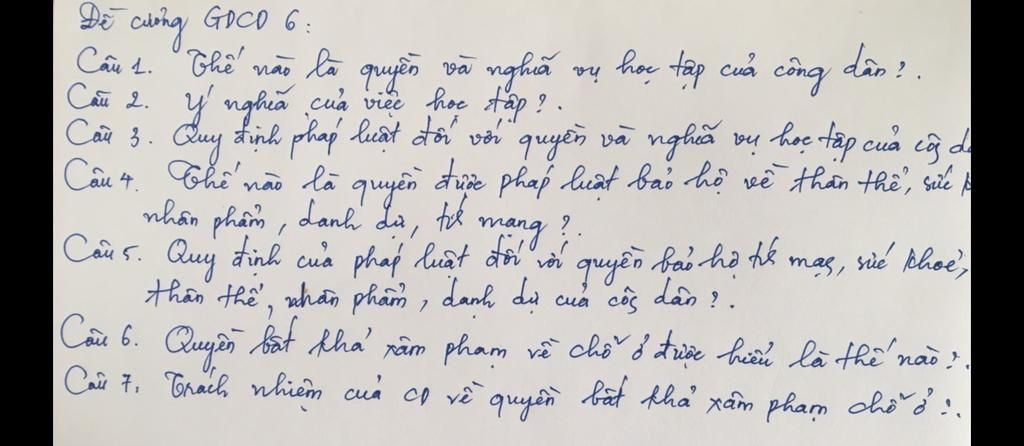 Đề cương GDCD 6:
Câu 1. Thế nào là quyền và nghĩa vụ học tập của công dân?.
Câu 2. Ý nghĩa của việc học tập?.
Câu 3. Quy định pháp luật đối với quyền và nghĩa vụ học tập của côg d
Câu 4. Thế nào là quyền được pháp luật bảo hộ về thân thể, sức k
nhân phẩm, danh dự, tír mạng?.
Câu 5. Quy định của pháp luật đối với quyền bảo hộ tír mạg, sức khoẻ,
thân thể, nhân phẩm, danh dự của côg dân?.
Câu 6. Quyền bất khả xâm phạm về chỗ ở được hiểu là thế nào?.
Câu 7. Trách nhiệm của CD về quyền bất khả xâm phạm chỗ ở?.